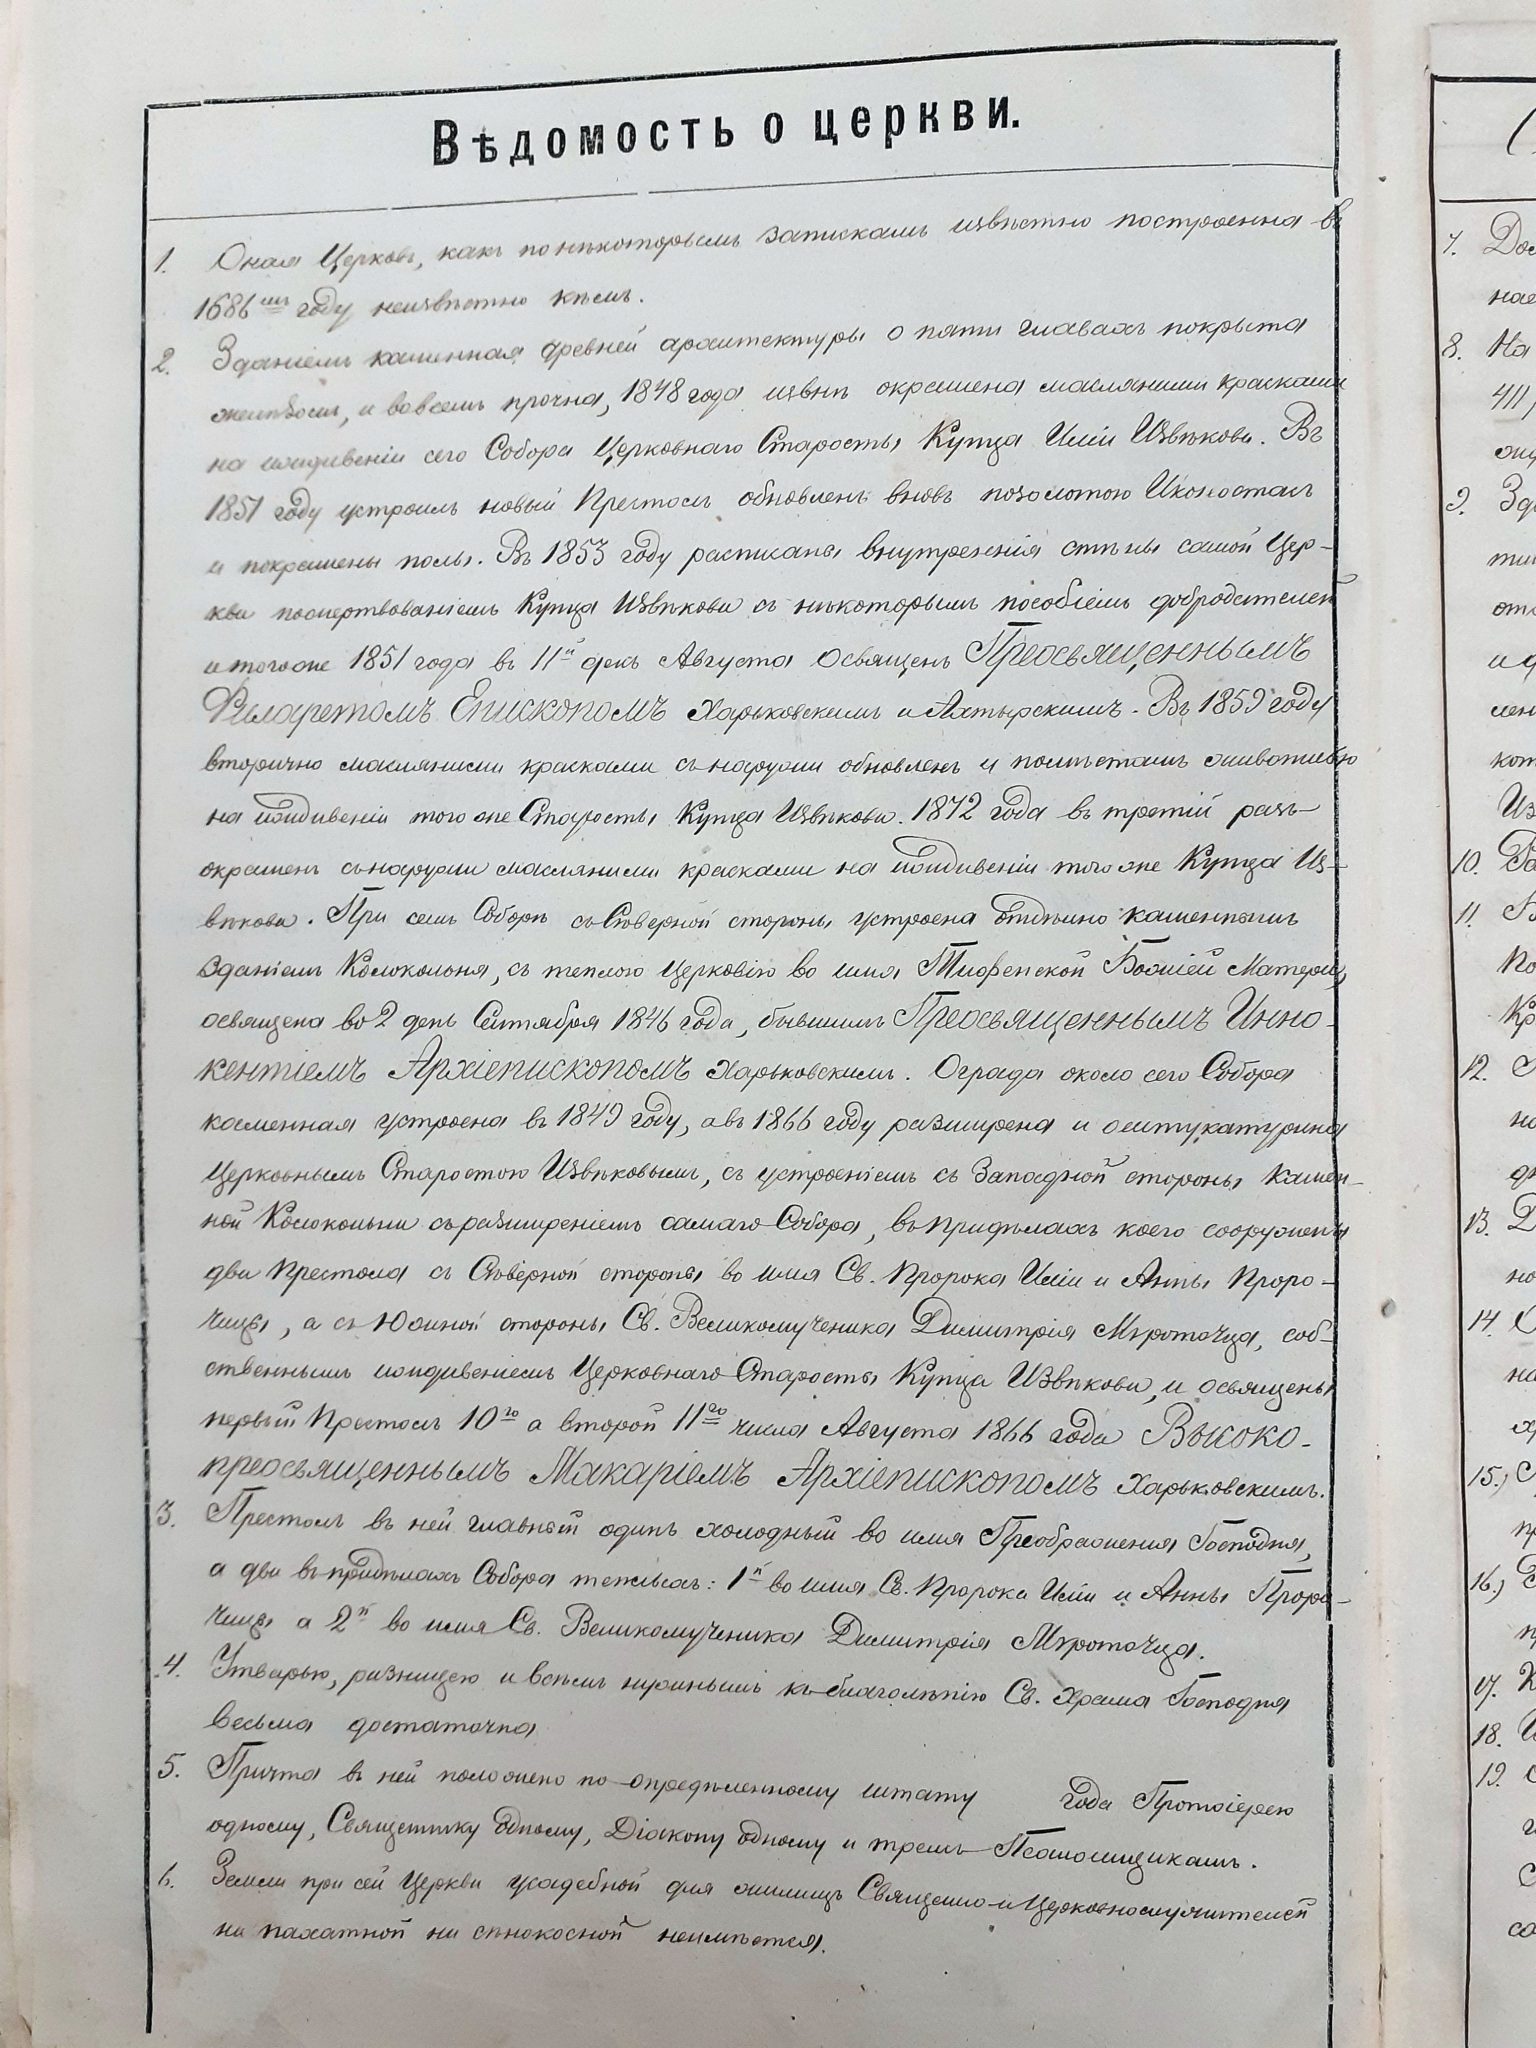 Вѣдомость о церкви.
1. Оная Церковь, какъ по нѣкоторымъ запискамъ извѣстно построенна въ
1686мъ году неизвѣстно кѣмъ.
2. Зданіемъ каменная древней архитектуры о пяти главахъ покрыта
желѣзомъ, и вовсемъ прочна, 1848 года извнѣ окрашена масляними красками
на иждивеніи сего Собора Церковнаго Старосты Купца Иліи Извѣкова. Въ
1851 году устроилъ новый Престолъ обновленъ вновь позолотою Иконостасъ
и покрашены полы. Въ 1853 году расписаны внутреннія стѣны самой Цер-
кви посмертвованіемъ Купца Извѣкова съ нѣкоторымъ пособіемъ доброdателей
и тогоже 1851 года въ 11й день Августа Освященъ Преосвященнымъ
Филаретомъ Епископомъ Харьковскимъ и Ахтырскимъ. Въ 1859 году
вторично масляними красками снаружи обновленъ и помѣстамъ живописью
на иждивеніи того же Старосты Купца Извѣкова. 1872 года въ третій разъ
окрашенъ снаружи масляними красками на иждивеніи того же Купца Из-
вѣкова. При семъ Соборѣ съ Сѣверной стороны устроена отдѣльно каменнымъ
зданіемъ Колокольня, съ теплою Церковію во имя Божіей Матери,
освящена во 2 день Сентября 1846 года, бывшимъ Преосвященнымъ Инно-
кентіемъ Архіепископомъ Харьковскимъ. Ограда около сего Собора
каменная устроена въ 1849 году, а въ 1866 году разширена и оштукатурина
Церковнымъ Старостою Извѣковымъ, съ устроеніемъ съ Западной стороны Камен-
ной Колокольни съ разширеніемъ самаго Собора, въ придѣлахъ коего сооружены
два Престола съ Сѣверной стороны во имя Св. Пророка Иліи и Анны Проро-
чицы, а съ Южной стороны Св. Великомученика Димитрія Мѵроточца, соб-
ственнымъ иждивеніемъ Церковнаго Старосты Купца Извѣкова, и освящены
первый Престолъ 10го а второй 11го числа Августа 1866 года Высоко-
преосвященнымъ Макаріемъ Архіепископомъ Харьковскимъ.
3. Престолъ въ ней главный одинъ холодный во имя Преображенія Господня,
а два въ придѣлахъ Собора теплыхъ: 1й во имя Св. Пророка Иліи и Анны Проро-
чицы а 2й во имя Св. Великомученика Димитрія Мѵроточца.
4. Утварью, ризницею и всѣмъ нужнымъ къ благолѣпію Св. Храма Господня
весьма достаточна
5. Причта въ ней положено по опредѣленному штату года Протоіерею
одному, Священнику одному, Діакону одному и тремъ Псаломщикамъ.
6. Земли при сей Церкви усадебной для жилищъ Священно-и Церковнослужителей
ни пахатной ни сѣнокосной неимѣется.
7.
8. На
411
9.
10.
11.
12.
13.
14.
15.,
16.,
17.
18.
19.